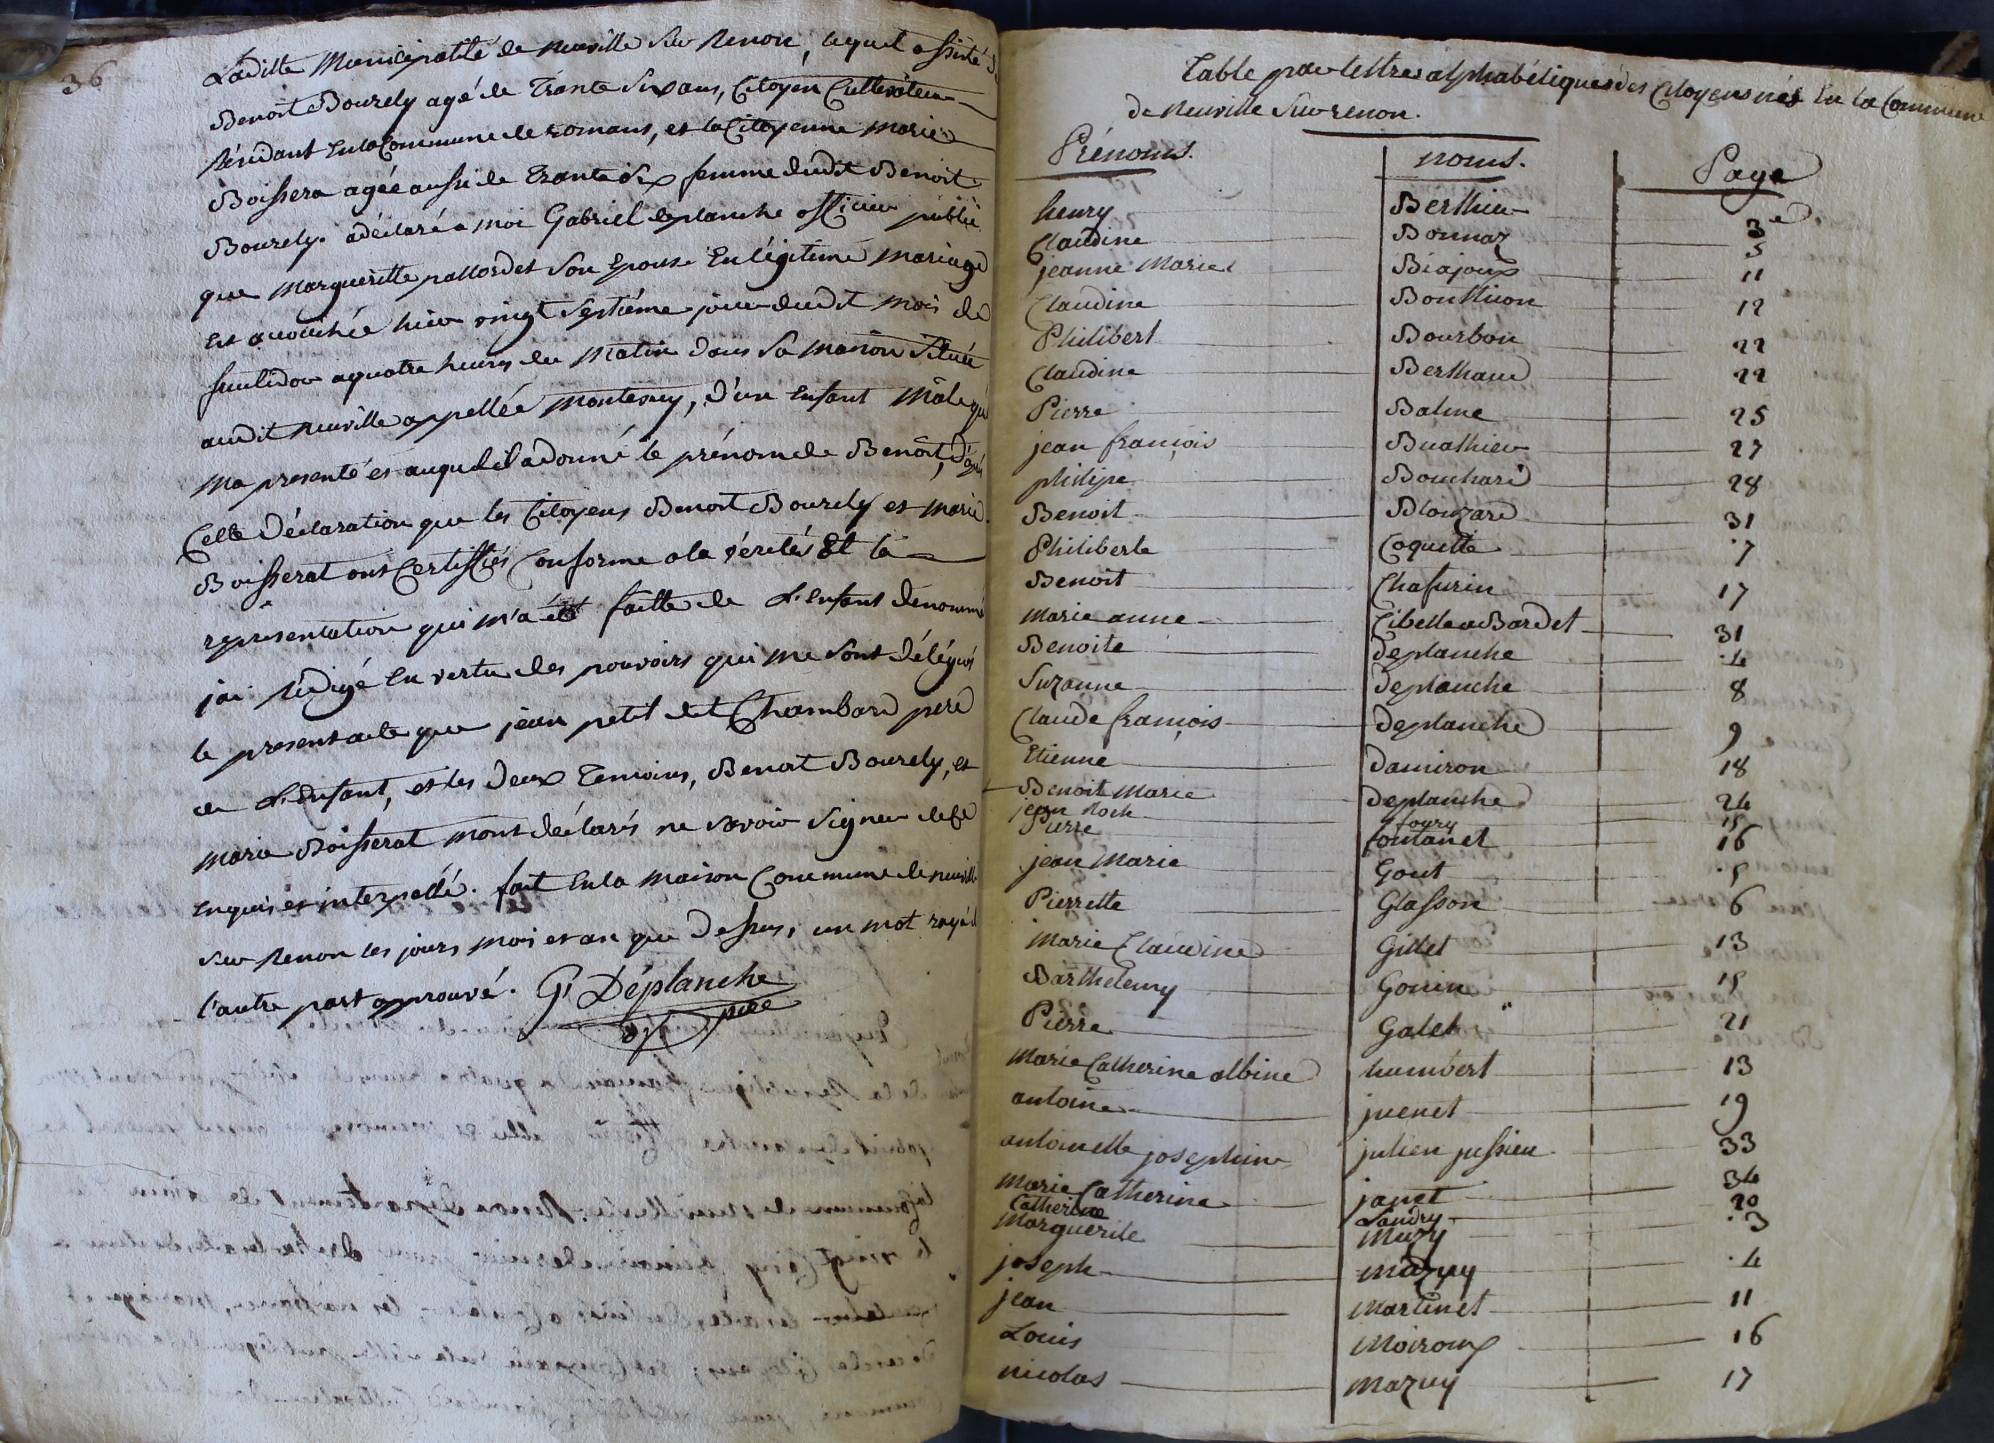 36
Laditte Municipalité de neuville sur Renon, lequel assisté de
Benoît Bourely agé de Trante six ans, Citoyen Cultivateur
Résidant En la Commune de romans, et la Citoyenne Marie
Boissera agée aussi de Trante six femme dudit Benoit
Bourely. a déclaré a moi Gabriel deplanche officier public
que Marguerite pallordet son Epouse En légitime mariage
Est accouchée hier vingt septième jour dudit mois de
fructidor a quatre heures du Matin dans sa maison située
audit neuville appellée montesuy, d'un Enfant Mâle qu'il
ma presenté et auquel il a donné le prénom de Benoît, d'après
Cette déclaration que les Citoyens Benoit Bourely et marie
Boisserat ont Certiffiés Conforme a la vérités Et la
représentation qui m'a été faitte de L'Enfant dénommé
j'ai Rédigé En vertu des pouvoirs qui me sont délégués
le present acte que jean petit dit Chambard pere
de L'Enfant, et les deux Temoins, Benoit Bourely, et
Marie Boisserat mont déclarés ne savoir signer de ce
Enquis et interpellé. fait En la maison Commune de neuville
sur Renon les jours mois et an que dessus, un mot rayé d
l'autre part approuvé. G. Déplanche
off. pub
Table par lettres alphabétiques des Citoyens nés En la Commune
de Neuville Sur renon.
Prénoms. noms. Page
henry Berthier 3e
Claudine Bonnaz 5
jeanne Marie Biajoux 11
Claudine Bonthion 12
Philibert Bourbon 22
Claudine Berthaud 22
Pierre Balme 25
jean françois Buathier 27
philipe Bouchard 28
Benoit Blouzard 31
Philiberte Coquette 7
Benoit Chafurin 17
Marie anne Cibelle a Bardet 31
Benoite deplanche 4
Suzanne deplanche 8
Claude françois deplanche 9
Etienne damiron 18
Benoit Marie deplanche 24
jean Roch foury 15
Pierre fontanet 16
jean Marie Gout 5
Pierrette Glasson 6
Marie Claudine Gillet 13
Barthelemy Gonin 15
Pierre Galet 21
Marie Catherine albine humbert 13
antoine juenet 19
antoinette josephine julien jussieu 33
Marie Catherine janet 34
Catherine Landry 20
Marguerite Muzy 3
joseph Mazuy 4
jean Martinet 11
Louis Moiroux 16
nicolas Mazuy 17